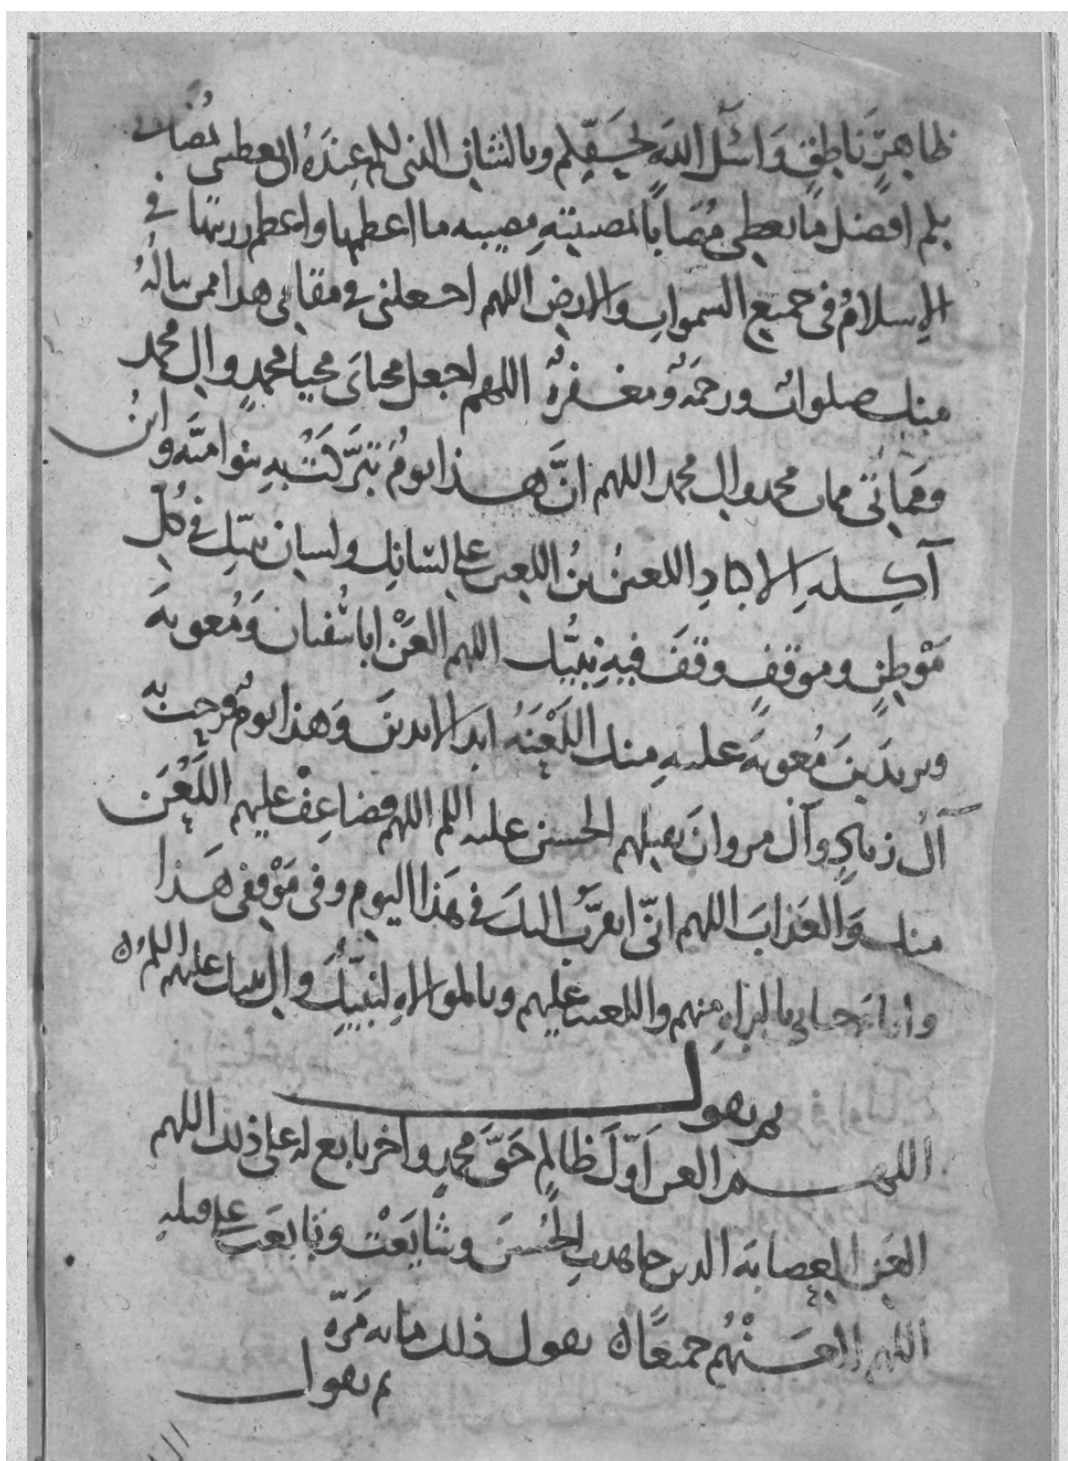 ظاهرٍ ناطقٍ وَاسْئَلُ اللهَ بِحَقِّكم وبالشان الذى لكم عِندَهُ ان يعطينى بمُصابى
بكم افضل ما يعطى مُصَابًا بمصيبتهِ مصيبه ما اعظمها واعظم رزيتها فى
الاسلامِ وفى جميع السموات والارض اللهم اجعلنى فى مقامى هذا ممن تنالُهُ
منك صلواتٌ ورحمَةٌ ومغفرةٌ اللهم اجعل محياىَ محيا محمدٍ وال محمد
ومماتى ممات محمد وال محمد اللهم انَّ هـــذا يومٌ تبَرَّكَتْ بهِ بنوا اميَّه وابنُ
آكِــلهِ الاكبادِ اللعينُ بنُ اللعين على لسانك ولسان نبيّك فى كُلّ
مَوْطِنٍ وموقفٍ وقفَ فيهِ نبيُّك اللهم العَنْ ابا سُفيان وَمُعويهَ
ويزيدَ بنَ مُعويهَ عليهِ منك اللَعْنَهُ ابدَ الابدينَ وَهذا يومٌ فرِحتْ به
آلُ زيادٍ وآلُ مروانَ بقتلهم الحسين عليه السلم اللهم فضاعِفْ عليهم اللَعْنَ
منك وَالعَذابَ اللهم انّى اتقرَّبُ اليكَ فى هَذا اليوم وفى مَوْقِفى هَذا
وايامَ حياتى بالبراهِ منهم واللعنه عليهم وبالموالاهِ لنبيّكَ وال نبيك عليهم السلمُ ه
ثم يقول
اللهـــم العن اَوّلَ ظالمٍ حَقَّ محمدٍ واخر تابع له على ذلك اللهم
العَن العصابه الذين جاهدتِ الحُسينَ وشايَعَتْ وتابعَت على قتله
اللهم العَـــنْهُم جميعًا ه يقول ذلك مايه مَرّه
ثم يقول